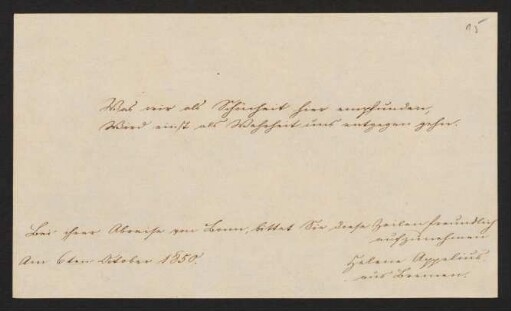 15
Was wir als Schönheit hier empfunden,
Wird einst als Wahrheit uns entgegen gehn.
Bei ihrer Abreise von Bonn, bittet Sie diese Zeilen freundlich
aufzunehmen
Am 6ten October 1850.
Helene Appelius
aus Bremen.